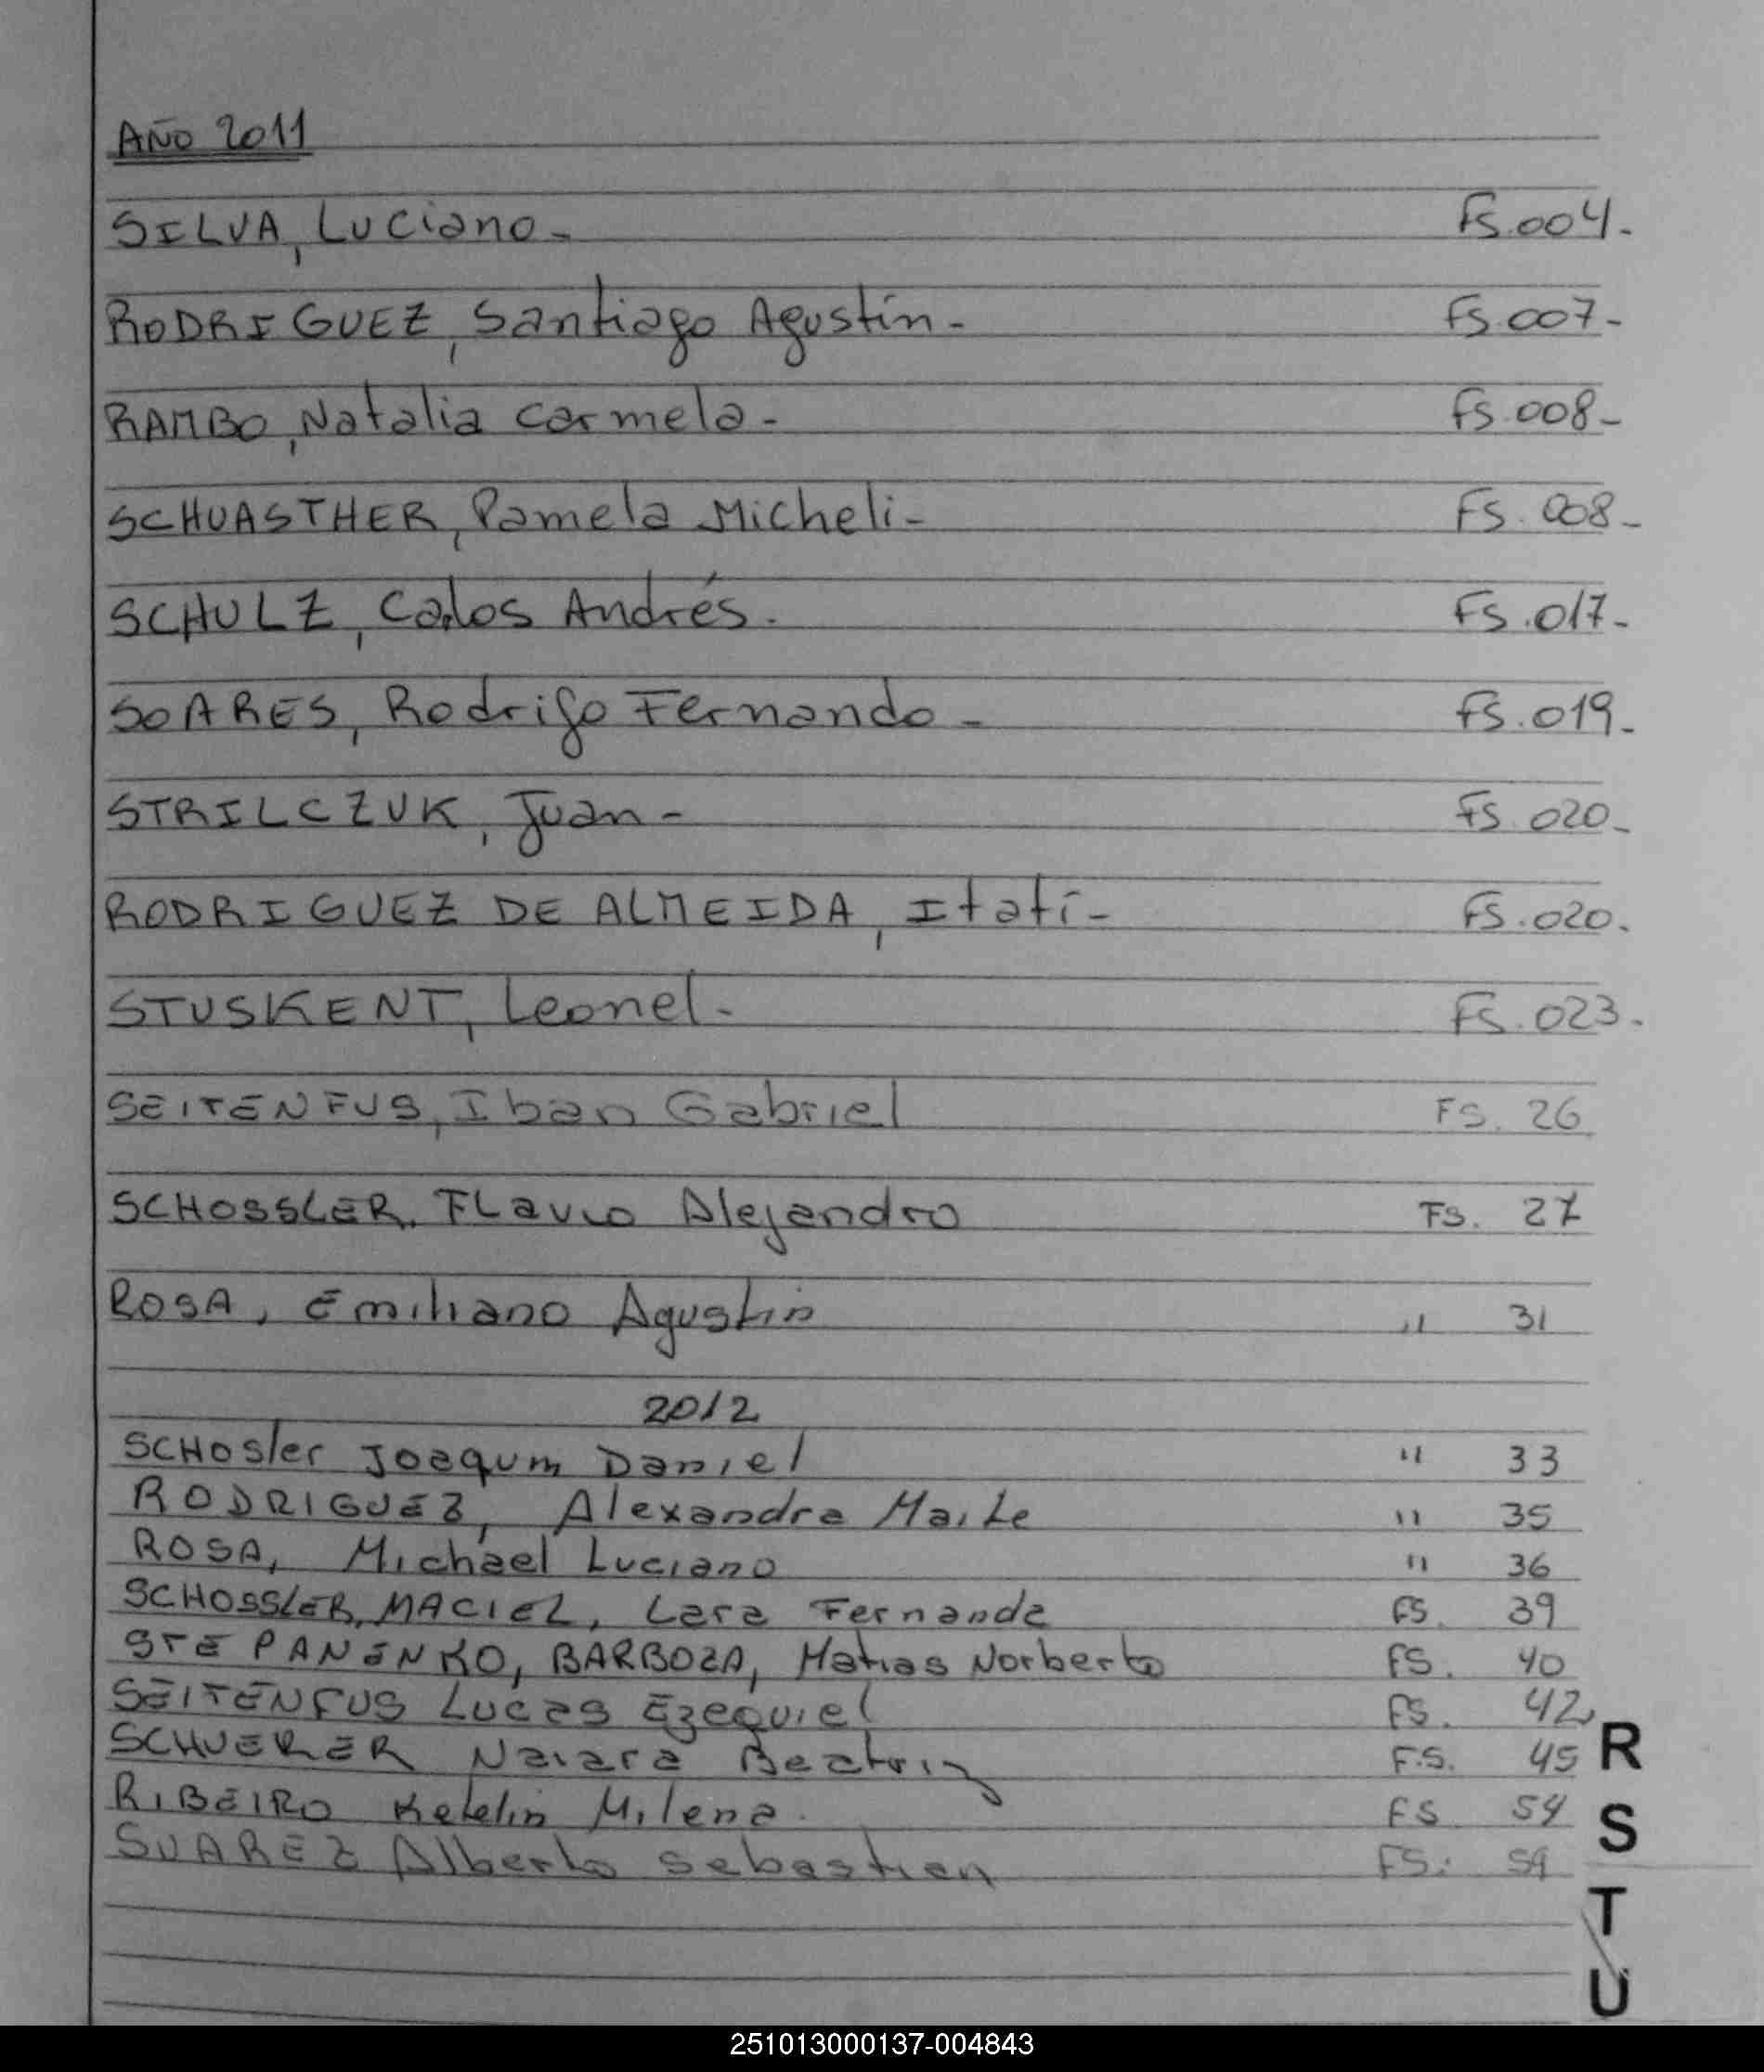 AÑO 2011
SILVA, Luciano- Fs.004-
RODRIGUEZ, Santiago Agustín- Fs.007-
RAMBO, Natalia Carmela- Fs.008-
SCHUASTHER, Pamela Micheli- FS.008-
SCHULZ, Carlos Andrés. FS.017-
SOARES, Rodrigo Fernando- FS.019-
STRILCZUK, Juan- FS.020-
RODRIGUEZ DE ALMEIDA, Itatí- FS.020.
STUSKENT, Leonel- FS.023.
SEITENFUS, Iban Gabriel FS. 26
SCHOSSLER, Flavio Alejandro FS. 27
ROSA, Emiliano Agustin " 31
2012
SCHOSler Joaquim Daniel " 33
RODRIGUEZ, Alexandra Maite " 35
ROSA, Michael Luciano " 36
SCHOSSLER, MACIEL, Lara Fernanda FS. 39
STEPANENKO, BARBOZA, Matias Norberto FS. 40
SEITENFUS Lucas Ezequiel FS. 42
SCHUERER Naiara Beatriz F.S. 45
RIBEIRO Ketelin Milena. FS 54
SUAREZ Alberto Sebastian FS:
R
S
T
U
251013000137-004843